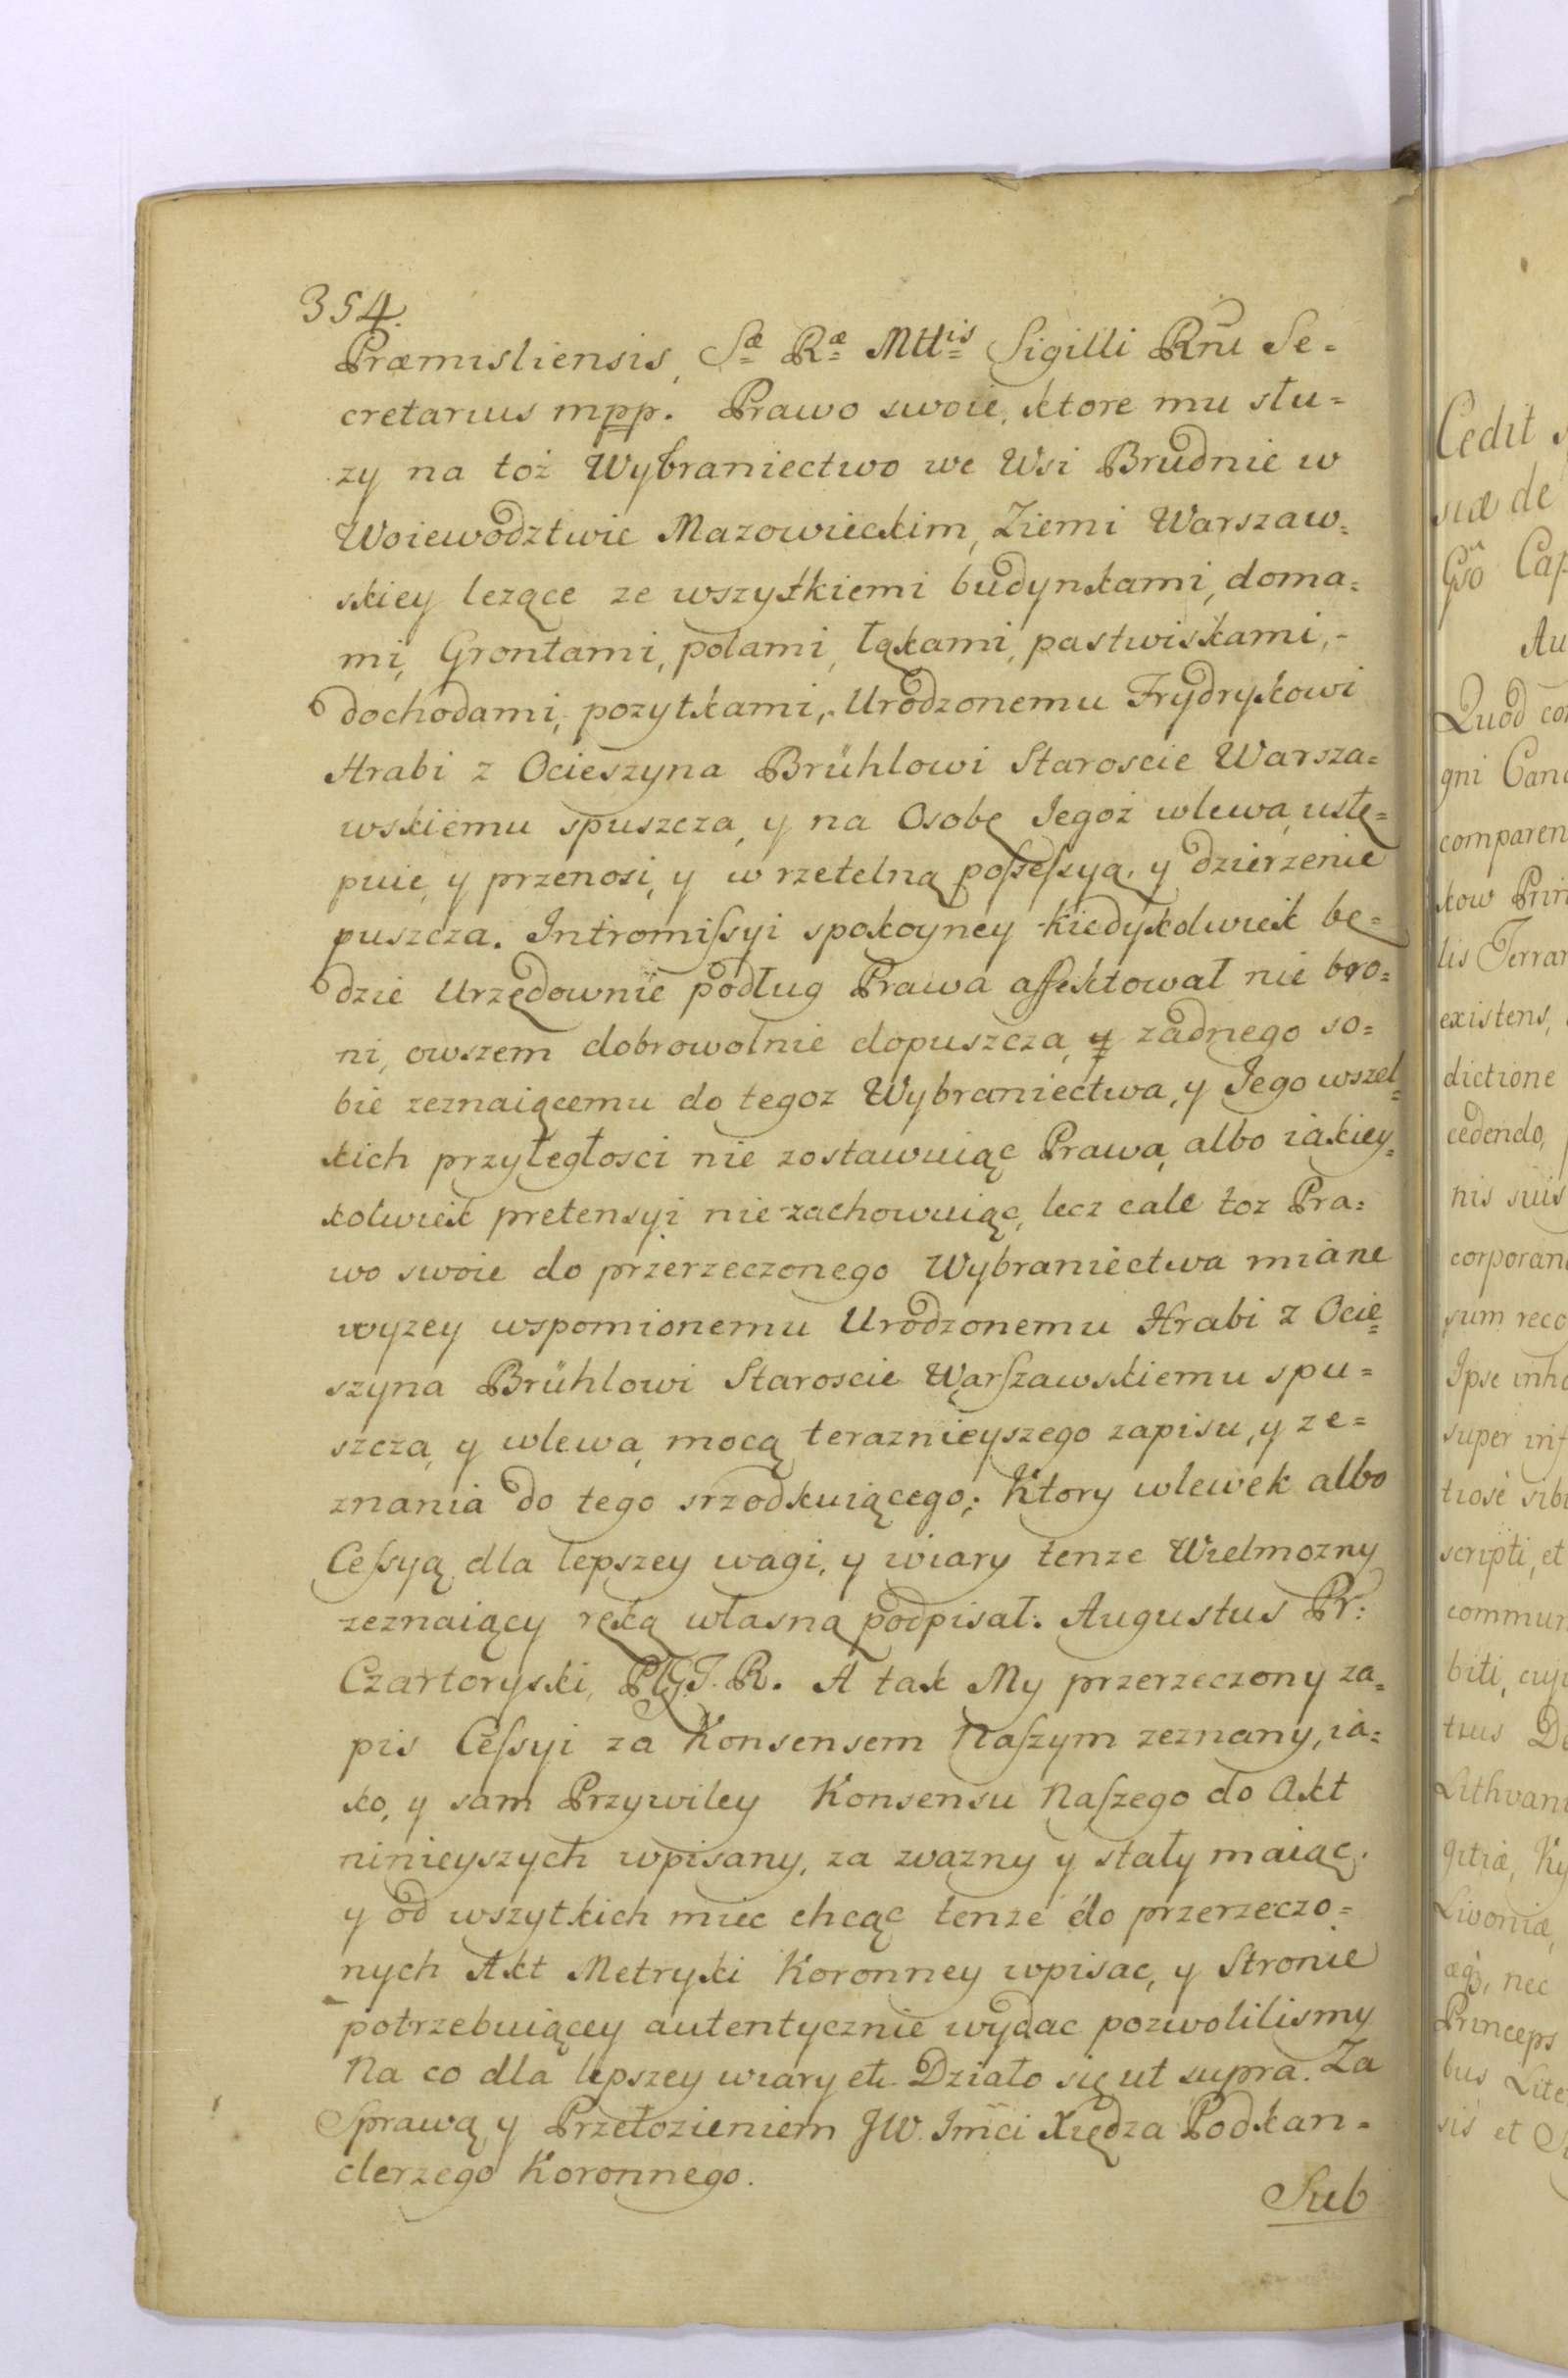 354.
Præmisliensis, Sæ Ræ Mttis Sigilli Rni Se=
cretarius mpp. Prawo swoie, ktore mu słu=
zy na toż Wybraniectwo we Wsi Brudnie w
Woiewodztwie Mazowieckim, Ziemi Warszaw=
skiey lezące ze wszytkiemi budynkami, doma=
mi, Grontami, polami, łąkami, pastwiskami,-
dochodami, pozytkami, Urodzonemu Frydrykowi
Hrabi z Ocieszyna Brühlowi Staroscie Warsza=
wskiemu spuszcza, y na Osobę Jegoż wlewa, ustę=
puie, y przenosi, y w rzetelną poſseſsyą, y dzierzenie
puszcza. Intromiſsyi spokoyney kiedyskolwiek bę=
dzie Urzędownie podług Prawa affektował nie bro=
ni, owszem dobrowolnie dopuszcza, y zadnego so=
bie zeznaiącemu do tegoz Wybraniectwa, y Jego wszel=
kich przyległosci nie zostawuiąc Prawa, albo iakiey=
kolwiek pretensyi nie zachowuiąc, lecz cale toz Pra=
wo swoie do przerzeczonego Wybraniectwa miane
wyzey wspomionemu Urodzonemu Hrabi z Ocie=
szyna Brühlowi Staroscie Warſzawskiemu spu=
szcza, y wlewa, mocą teraznieyszego zapisu, y ze=
znania do tego srzodkuiącego; Ktory wlewek albo
Ceſsyą dla lepszey wagi, y wiary tenze Wielmozny
zeznaiący ręką własną podpisał. Augustus Pr:
Czartoryski, P.G.T.R. A tak My przerzeczony za=
pis Ceſsyi za Konsensem Naſzym zeznany, ia=
ko, y sam Przywiley Konsensu Naſzego do Akt
ninieyszych wpisany, za zwazny y stały maiąc.
y od wszytkich miec chcąc tenze do przerzeczo=
nych Akt Metryki Koronney wpisac, y Stronie
potrzebuiącey autentycznie wydac pozwolilismy
Na co dla lepszey wiary etc. Działo się ut supra. Za
Sprawą y Przełozieniem JW. Jmci Xiędza Podkan=
clerzego Koronnego.
Sub
Cedit
suæ de
Gso Cap
Au
Quod co
gni Canc
comparen
kow Prin
lis Terrar
existens,
dictione
cedendo,
nis suis
corporan
sum reco
Ipse inhæ
super inf
tiose sibi
scripti, et
commun
biti, cuju
tius De
Lithvani
gitiæ, Ky
Livoniæ,
æq3, nec
Princeps
bus Lite
sis et S